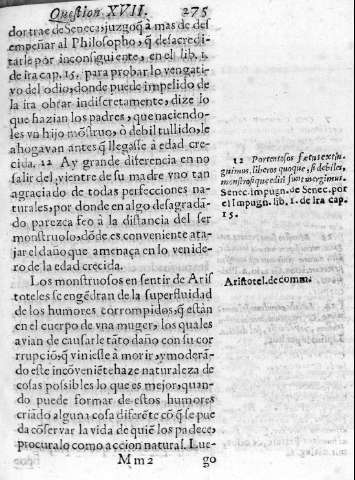 Question XVII. 275
dor trae de Seneca; juzgoq̃ à mas de des
empeñar al Philosopho, q̃ desacredi-
tarle por inconsiguiente, en el lib. 1.
de ira cap. 15. para probar lo vengati-
vo del odio, donde puede impelido de
la ira obrar indiscretamente, dize lo
que hazian los padres, que naciendo-
les vn hijo mõstruo, ò debil tullido, le
ahogavan antes q̃ llegasse à edad cre-
cida. 12 Ay grande diferencia en no
salir del vientre de su madre vno tan
agraciado de todas perfecciones na-
turales, por donde en algo desagradã-
do parezca feo à la distancia del ser
monstruoso, dõde es conveniente ata-
jar el daño que amenaça en lo venide-
ro de la edad crecida.
Los monstruosos en sentir de Aris
toteles se engẽdran de la superfluidad
de los humores corrompidos, q̃ estàn
en el cuerpo de vna muger, los quales
avian de causarle tãto daño con su cor
rrupciõ, q̃ viniesse à morir, y moderã-
do este incõveniẽte haze naturaleza de
cosas possibles lo que es mejor, quan-
do puede formar de estos humores
criãdo alguna cosa diferẽte cõ q̃ se pue
da cõservar la vida de quiẽ los padece,
procuralo como accion natural. Lue-
Mm2 go
12 Portentosos fœtus extin-
guimus, liberos quoque, si debiles,
monstrosique editi sunt mergimus.
Senec. impugn. de Senec. por
el Impugn. lib. 1. de ira cap.
15.
Aristotel. de comm.